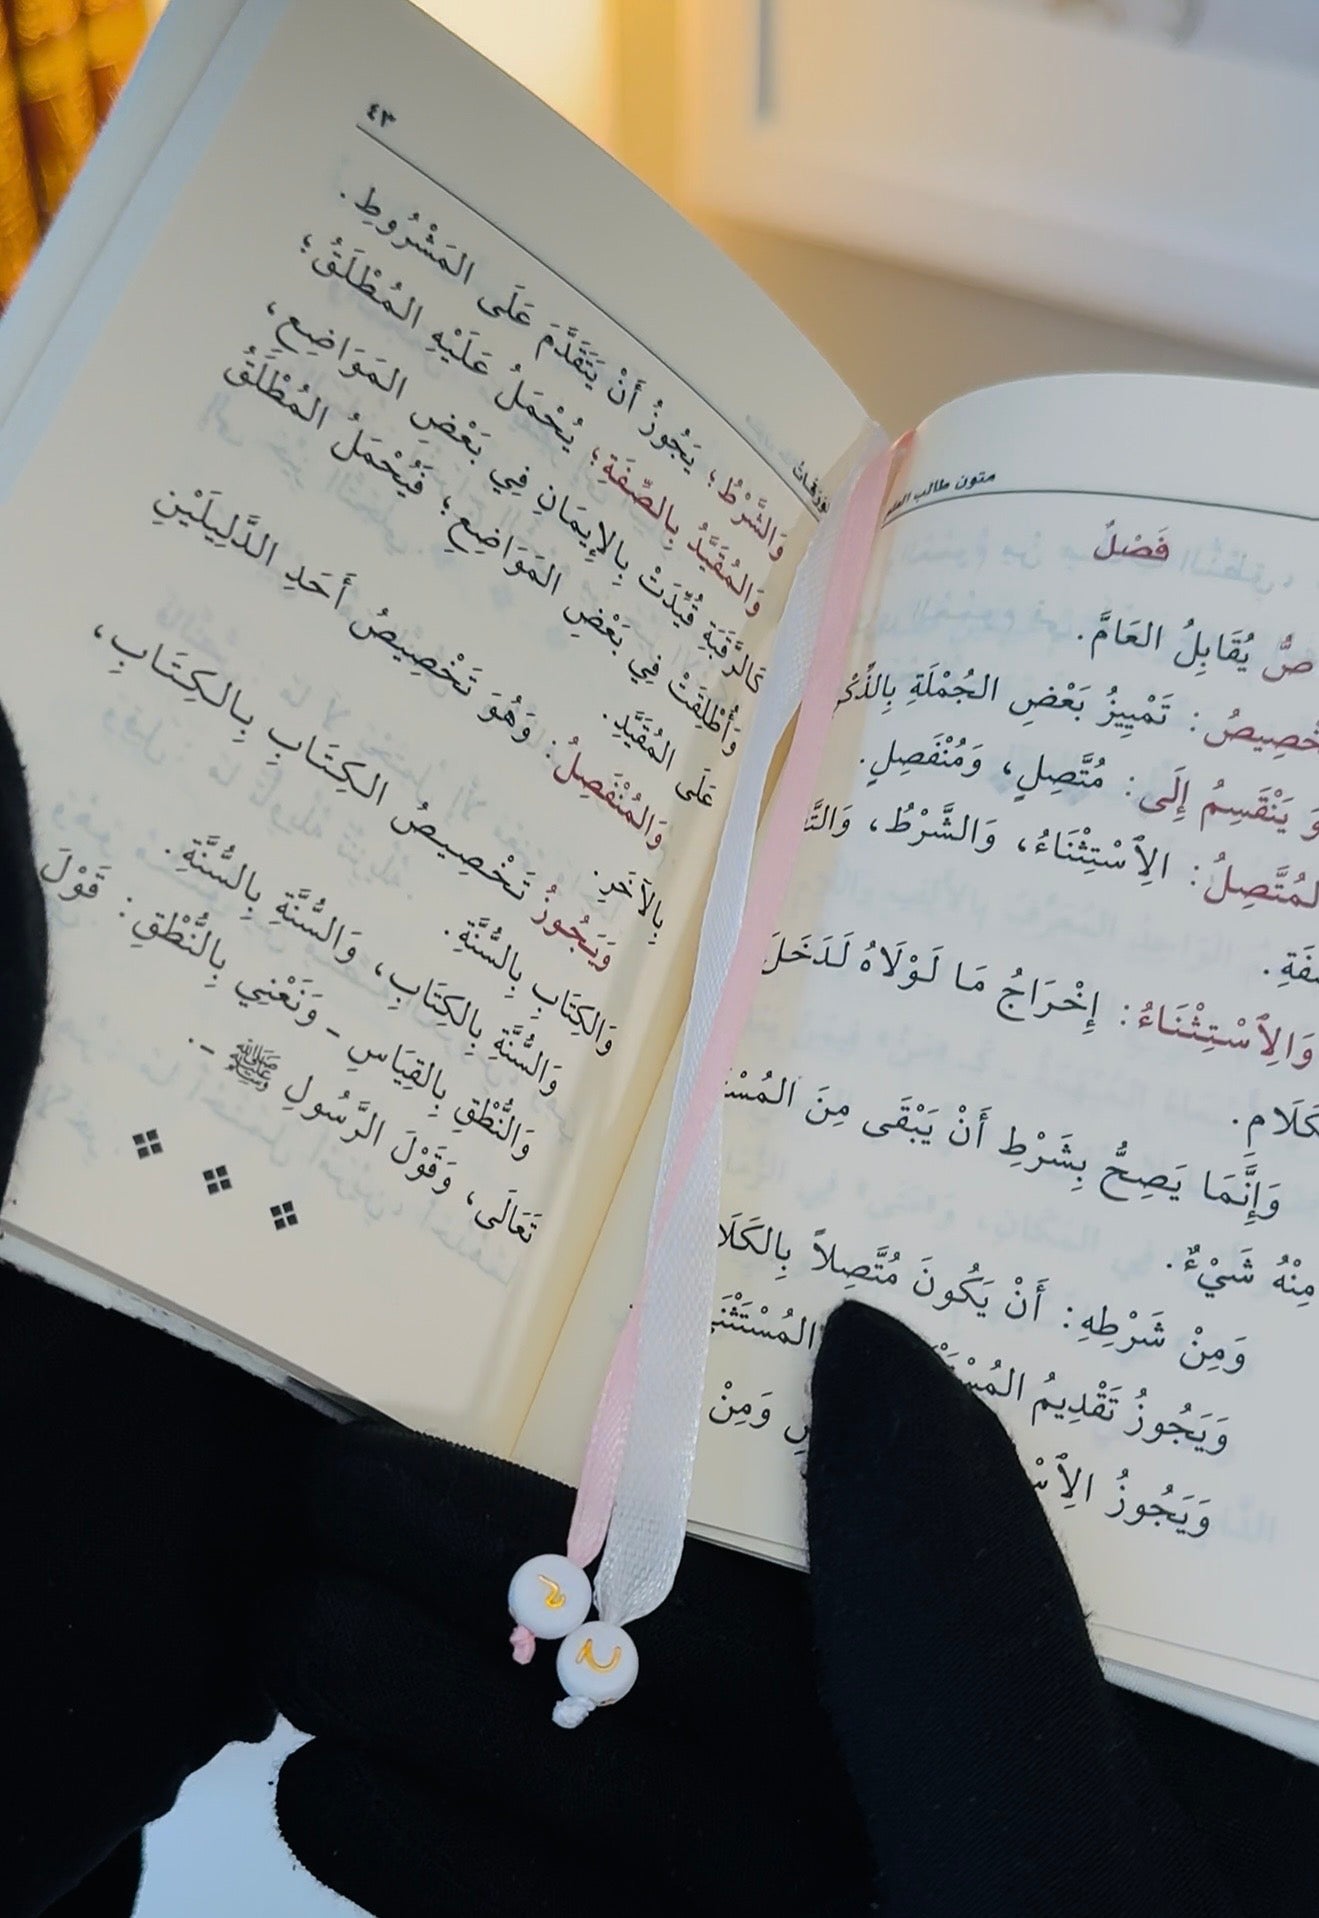 متون طالب العلم
فَصْلٌ
يُقَابِلُ العَامَّ.
تَمْيِيزُ بَعْضِ الجُمْلَةِ بِالذِّكْرِ
يَنْقَسِمُ إِلَى: مُتَّصِلٍ، وَمُنْفَصِلٍ.
المُتَّصِلُ: الِاسْتِثْنَاءُ، وَالشَّرْطُ،
وَالِاسْتِثْنَاءُ: إِخْرَاجُ مَا لَوْلَاهُ لَدَخَلَ
وَإِنَّمَا يَصِحُّ بِشَرْطِ أَنْ يَبْقَى مِنَ
مِنْهُ شَيْءٌ.
وَمِنْ شَرْطِهِ: أَنْ يَكُونَ مُتَّصِلاً
وَيَجُوزُ تَقْدِيمُ
وَيَجُوزُ
وَمِنْ
٤٣
وَالشَّرْطُ؛ يَجُوزُ أَنْ يَتَقَدَّمَ عَلَى المَشْرُوطِ.
وَالمُقَيَّدُ بِالصِّفَةِ؛ يُحْمَلُ عَلَيْهِ المُطْلَقُ؛
كَالرَّقَبَةِ قُيِّدَتْ بِالإِيمَانِ فِي بَعْضِ المَوَاضِعِ،
وَأُطْلِقَتْ فِي بَعْضِ المَوَاضِعِ؛ فَيُحْمَلُ المُطْلَقُ
عَلَى المُقَيَّدِ.
وَالمُنْفَصِلُ: وَهُوَ تَخْصِيصُ أَحَدِ الدَّلِيلَيْنِ
بِالآخَرِ.
وَيَجُوزُ تَخْصِيصُ الكِتَابِ بِالكِتَابِ،
وَالكِتَابِ بِالسُّنَّةِ.
وَالسُّنَّةِ بِالكِتَابِ، وَالسُّنَّةِ بِالسُّنَّةِ.
وَالنُّطْقِ بِالقِيَاسِ - وَنَعْنِي بِالنُّطْقِ: قَوْلَ
تَعَالَى، وَقَوْلَ الرَّسُولِ ﷺ -.